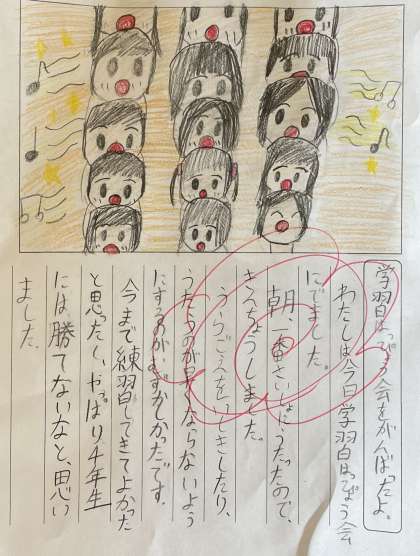 学習はっぴょう会をがんばったよ。
わたしは、今日学習はっぴょう会
にでました。
朝一番さいしょにうたったので、
きんちょうしました。
うらごえをいしきしたり、
うたうのが早くならないよう
にするのが、むずかしかったです。
今まで練習してきてよかった
と思ったし、やっぱり4年生
には勝てないなと、思い
ました。